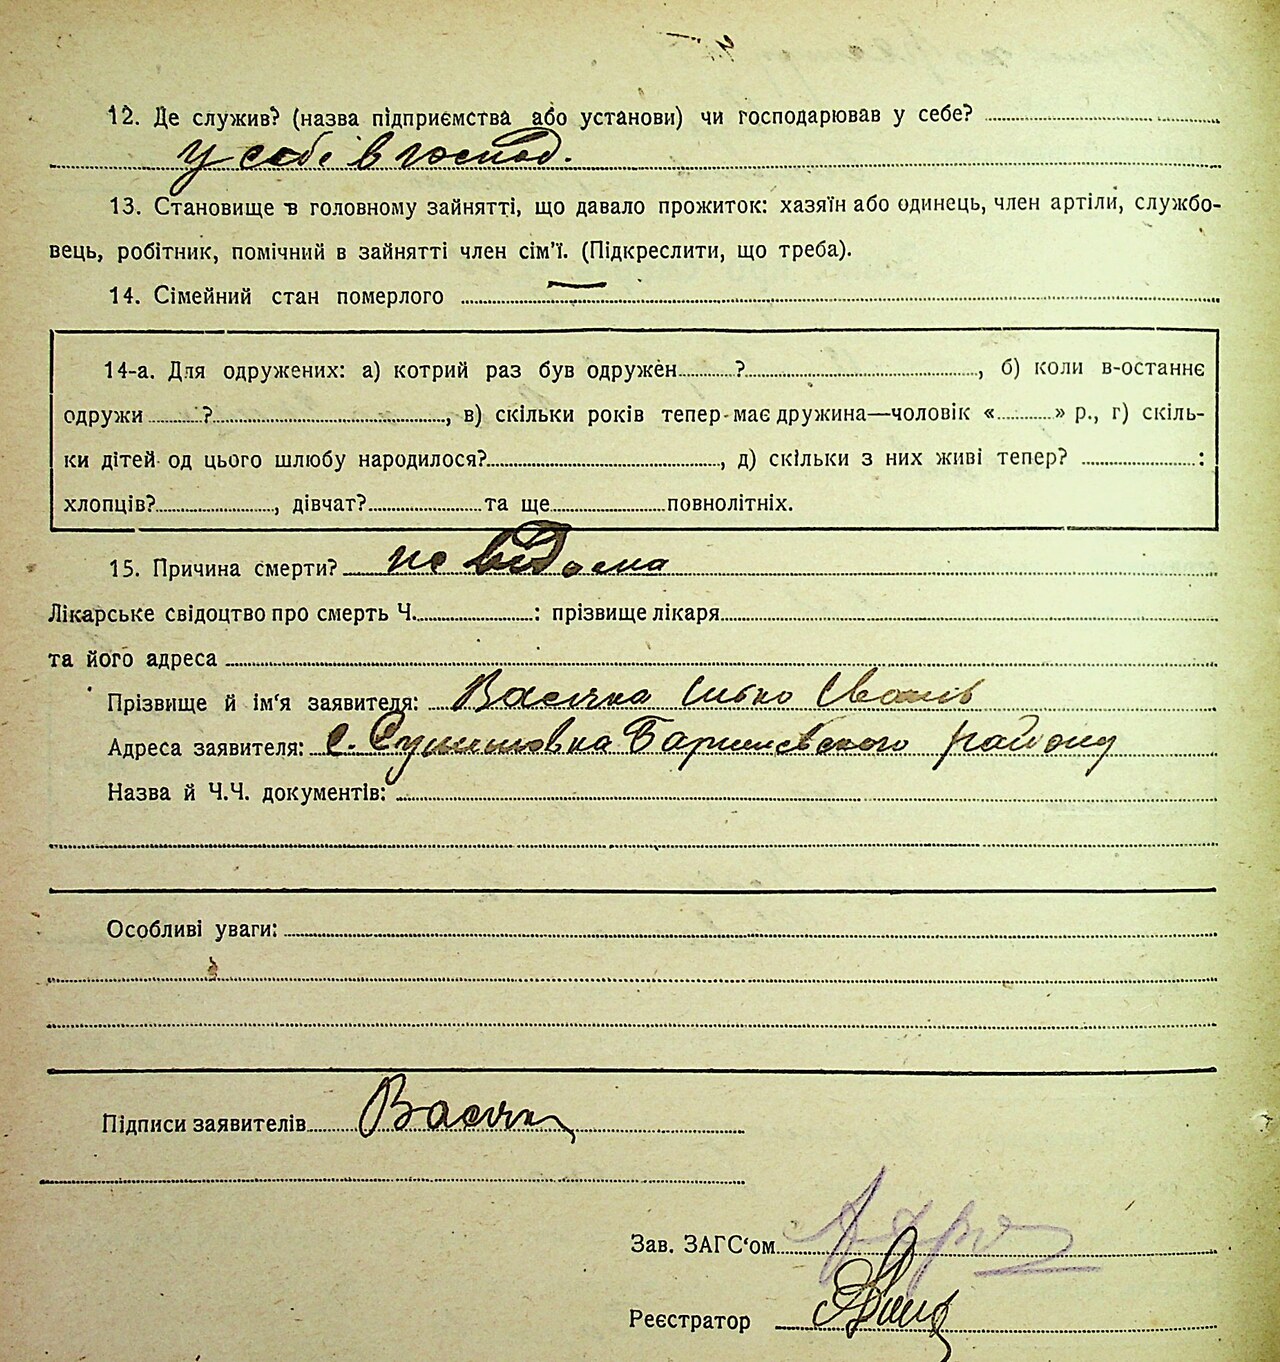 12. Де служив? (назва підприємства або установи) чи господарював у себе?
у себе в господ.
13. Становище в головному зайнятті, що давало прожиток: хазяїн або одинець, член артілі, службо-
вець, робітник, помічний в зайнятті член сім'ї. (Підкреслити, що треба).
14. Сімейний стан померлого —
14-а. Для одружених: а) котрий раз був одружен ? , б) коли в-останнє
одружи ? , в) скільки років тепер має дружина—чоловік « » р., г) скіль-
ки дітей од цього шлюбу народилося? , д) скільки з них живі тепер? :
хлопців? , дівчат? та ще повнолітніх.
15. Причина смерти? не відома
Лікарське свідоцтво про смерть Ч. : прізвище лікаря
та його адреса
Прізвище й ім'я заявителя:
Адреса заявителя: с. району
Назва й Ч.Ч. документів:
Особливі уваги:
Підписи заявителів
Зав. ЗАГС'ом
Реєстратор